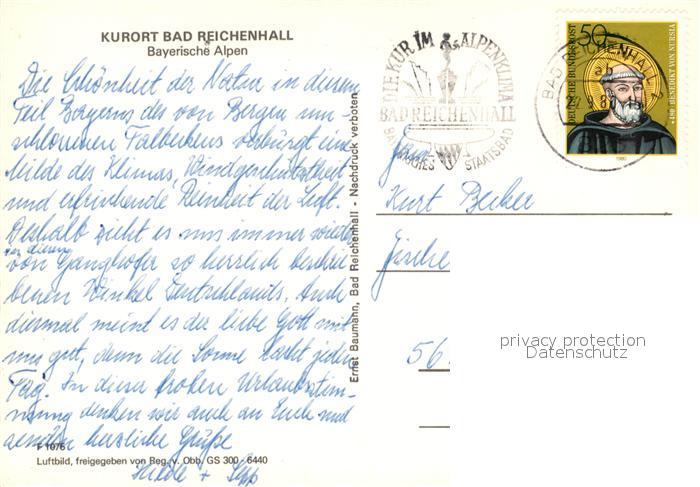 KURORT BAD REICHENHALL
Bayerische Alpen
Die Schönheit der Natur in diesem
Teil Bayerns des von Bergen um-
schlossenen Talbeckens verbürgt eine
Milde des Klimas, Windgeschütztheit
und erfrischende Reinheit der Luft.
Deshalb zieht es uns immer wieder
in diesen
von Ganghofer so herzlich beschrie
benen Winkel Deutschlands. Auch
diesmal meint es der liebe Gott mit
uns gut, denn die Sonne lacht jeden
Tag. In dieser frohen Urlaubsstim-
mung denken wir auch an Euch und
senden herzliche Grüße
Hilde + Sepp
F 1076
Luftbild, freigegeben von Reg. v. Obb. GS 300 6440
Ernst Baumann, Bad Reichenhall - Nachdruck verboten
DIE KUR IM ALPENKLIMA
BAD REICHENHALL
STAATSBAD
BAD REICHENHALL
50
DEUTSCHE BUNDESPOST
BENEDIKT VON NURSIA
1980
Fam.
Kurt Becker
Fische
56
privacy protection
Datenschutz